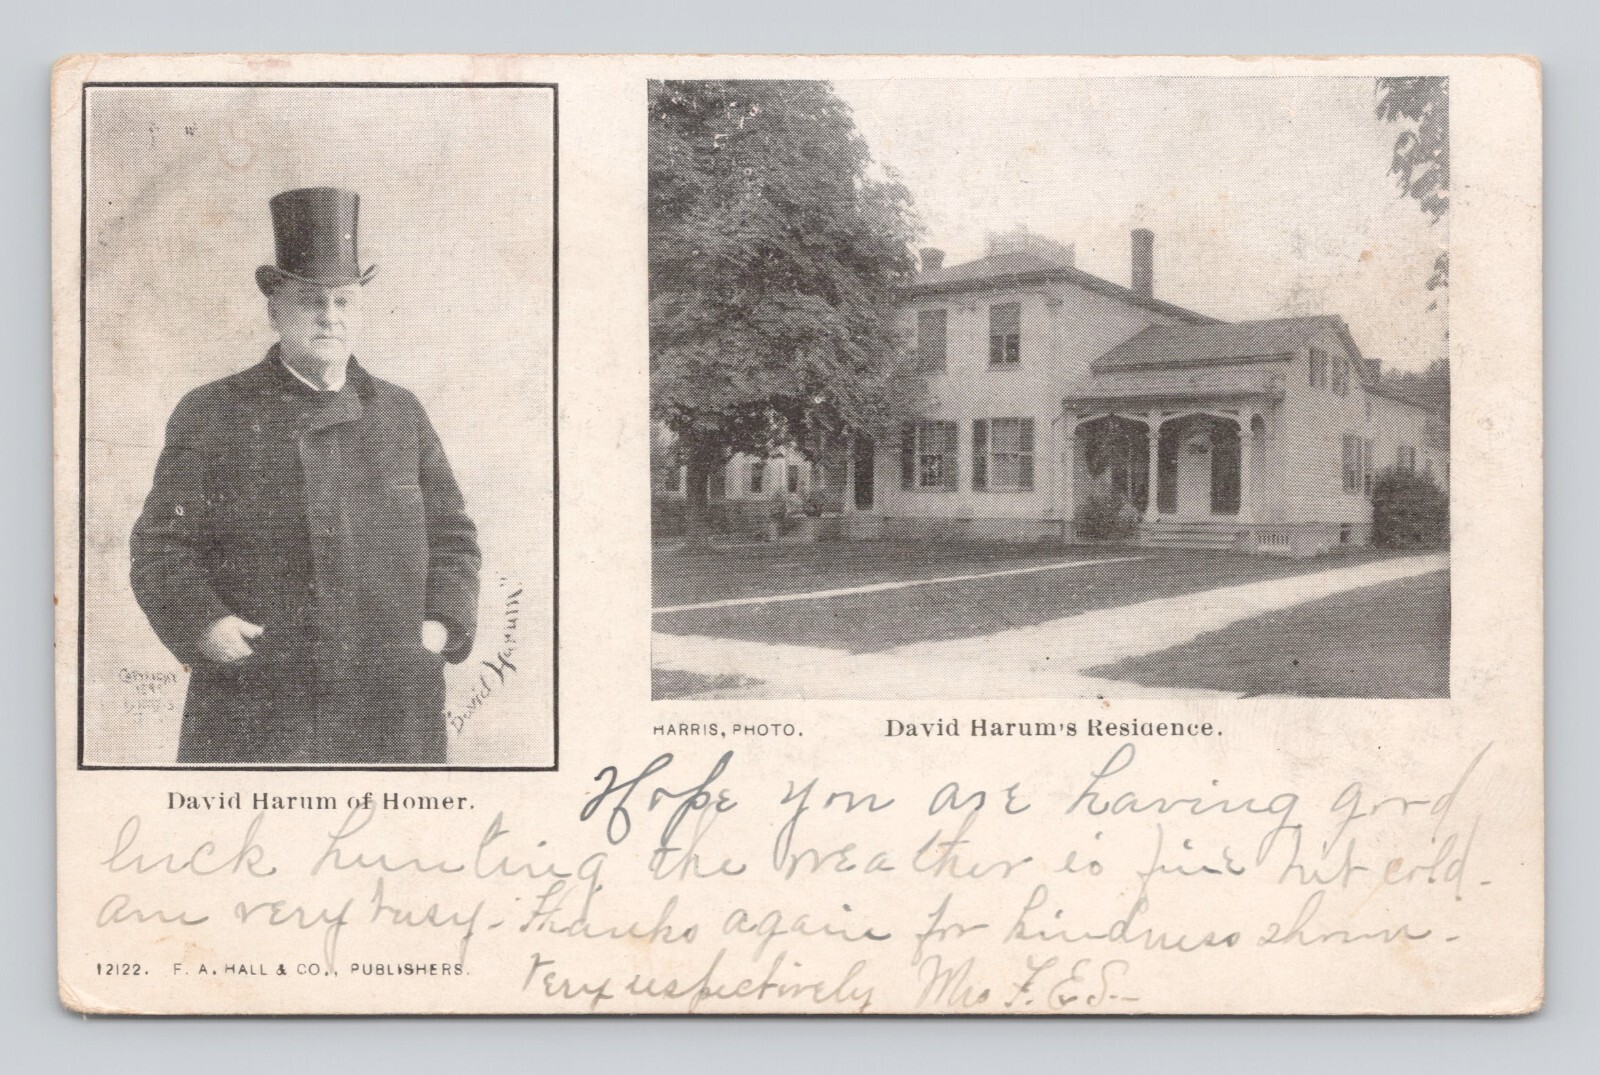 COPYRIGHT
"David Harum"
David Harum of Homer.
HARRIS, PHOTO.
David Harum's Residence.
Hope you are having good
luck hunting the weather is fine but cold.
am very busy. Thanks again for kindness shown.
Very respectively Mrs F. E. S.
12122. F. A. HALL & CO., PUBLISHERS.